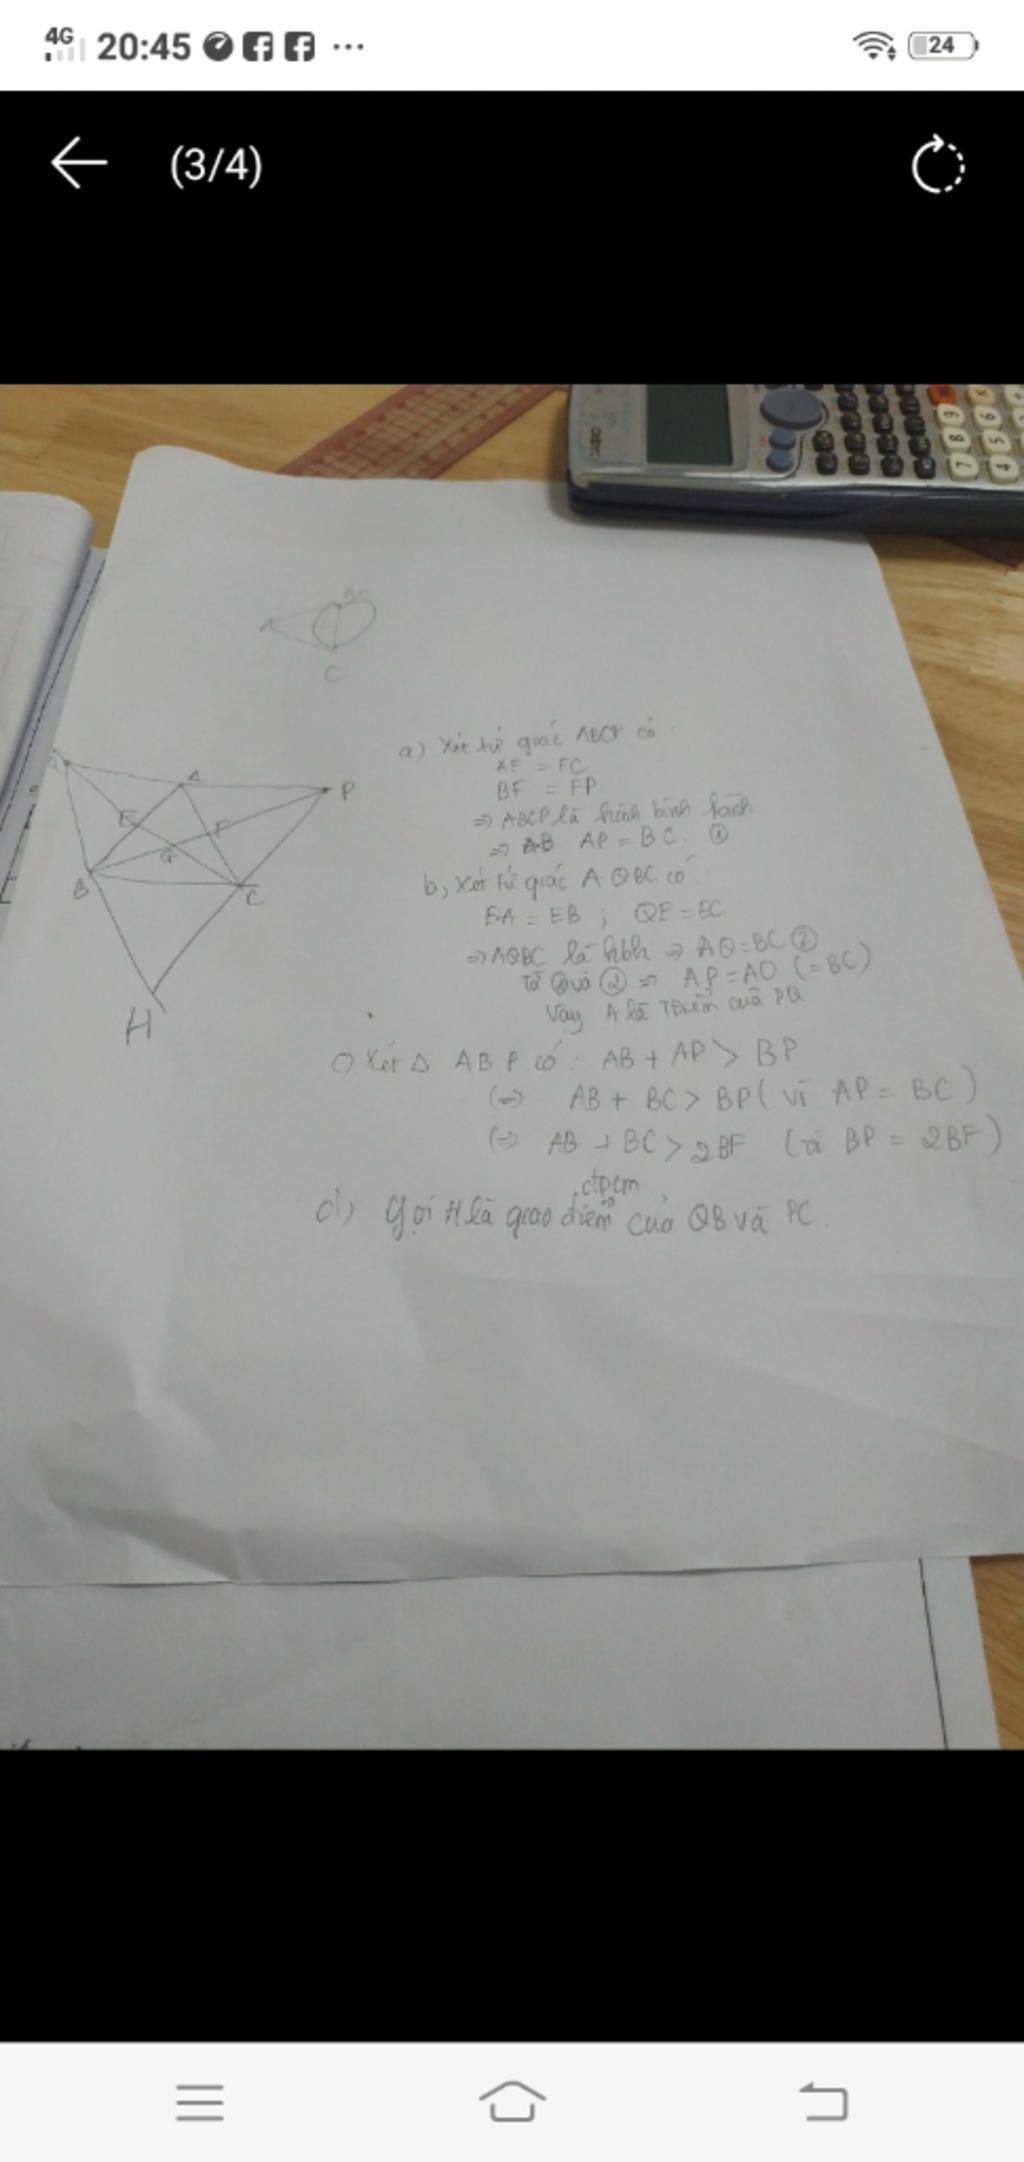 4G 20:45 ... 24
(3/4)
CASIO
9 6
8 5
7 4
C
a) Xét tứ giác ABCP có :
AF = FC
BF = FP
⇒ ABCP là hình bình hành
⇒ AB AP = BC. ①
b, Xét tứ giác AQBC có
EA = EB ; QE = EC
⇒ AQBC là hbh ⇒ AQ = BC ②
Từ ① và ② ⇒ AP = AQ (= BC)
Vậy A là Tđiểm của PQ
c) Xét Δ ABP có : AB + AP > BP
(⇒ AB + BC > BP ( vì AP = BC )
(⇒ AB + BC > 2BF (vì BP = 2BF )
đpcm
d) Gọi H là giao điểm của QB và PC.
Q A P
E F
G
B C
H